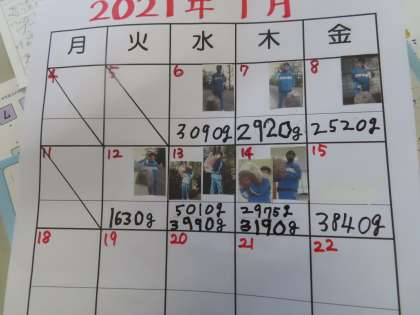 2021年1月
月 火 水 木 金
4 5 6 7 8
3090g 2920g 2520g
11 12 13 14 15
1630g 5010g 2975g 3840g
3990g 3190g
18 19 20 21 22